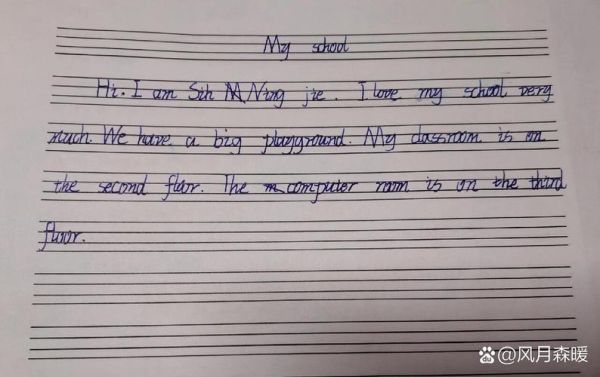 My school
Hi. I am Sih Ning jie. I love my school very
much. We have a big playground. My classroom is on
the second floor. The computer room is on the third
floor.
du @风月森暖